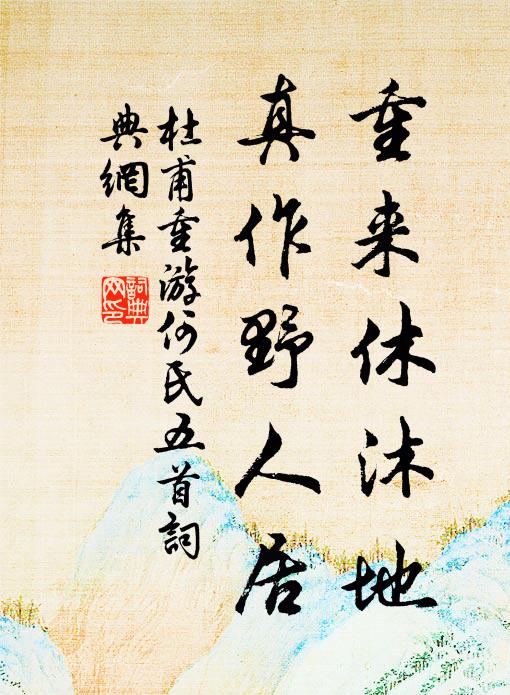 重来休沐地
真作野人居
杜甫重游何氏五首詞
典網集
詞典網印